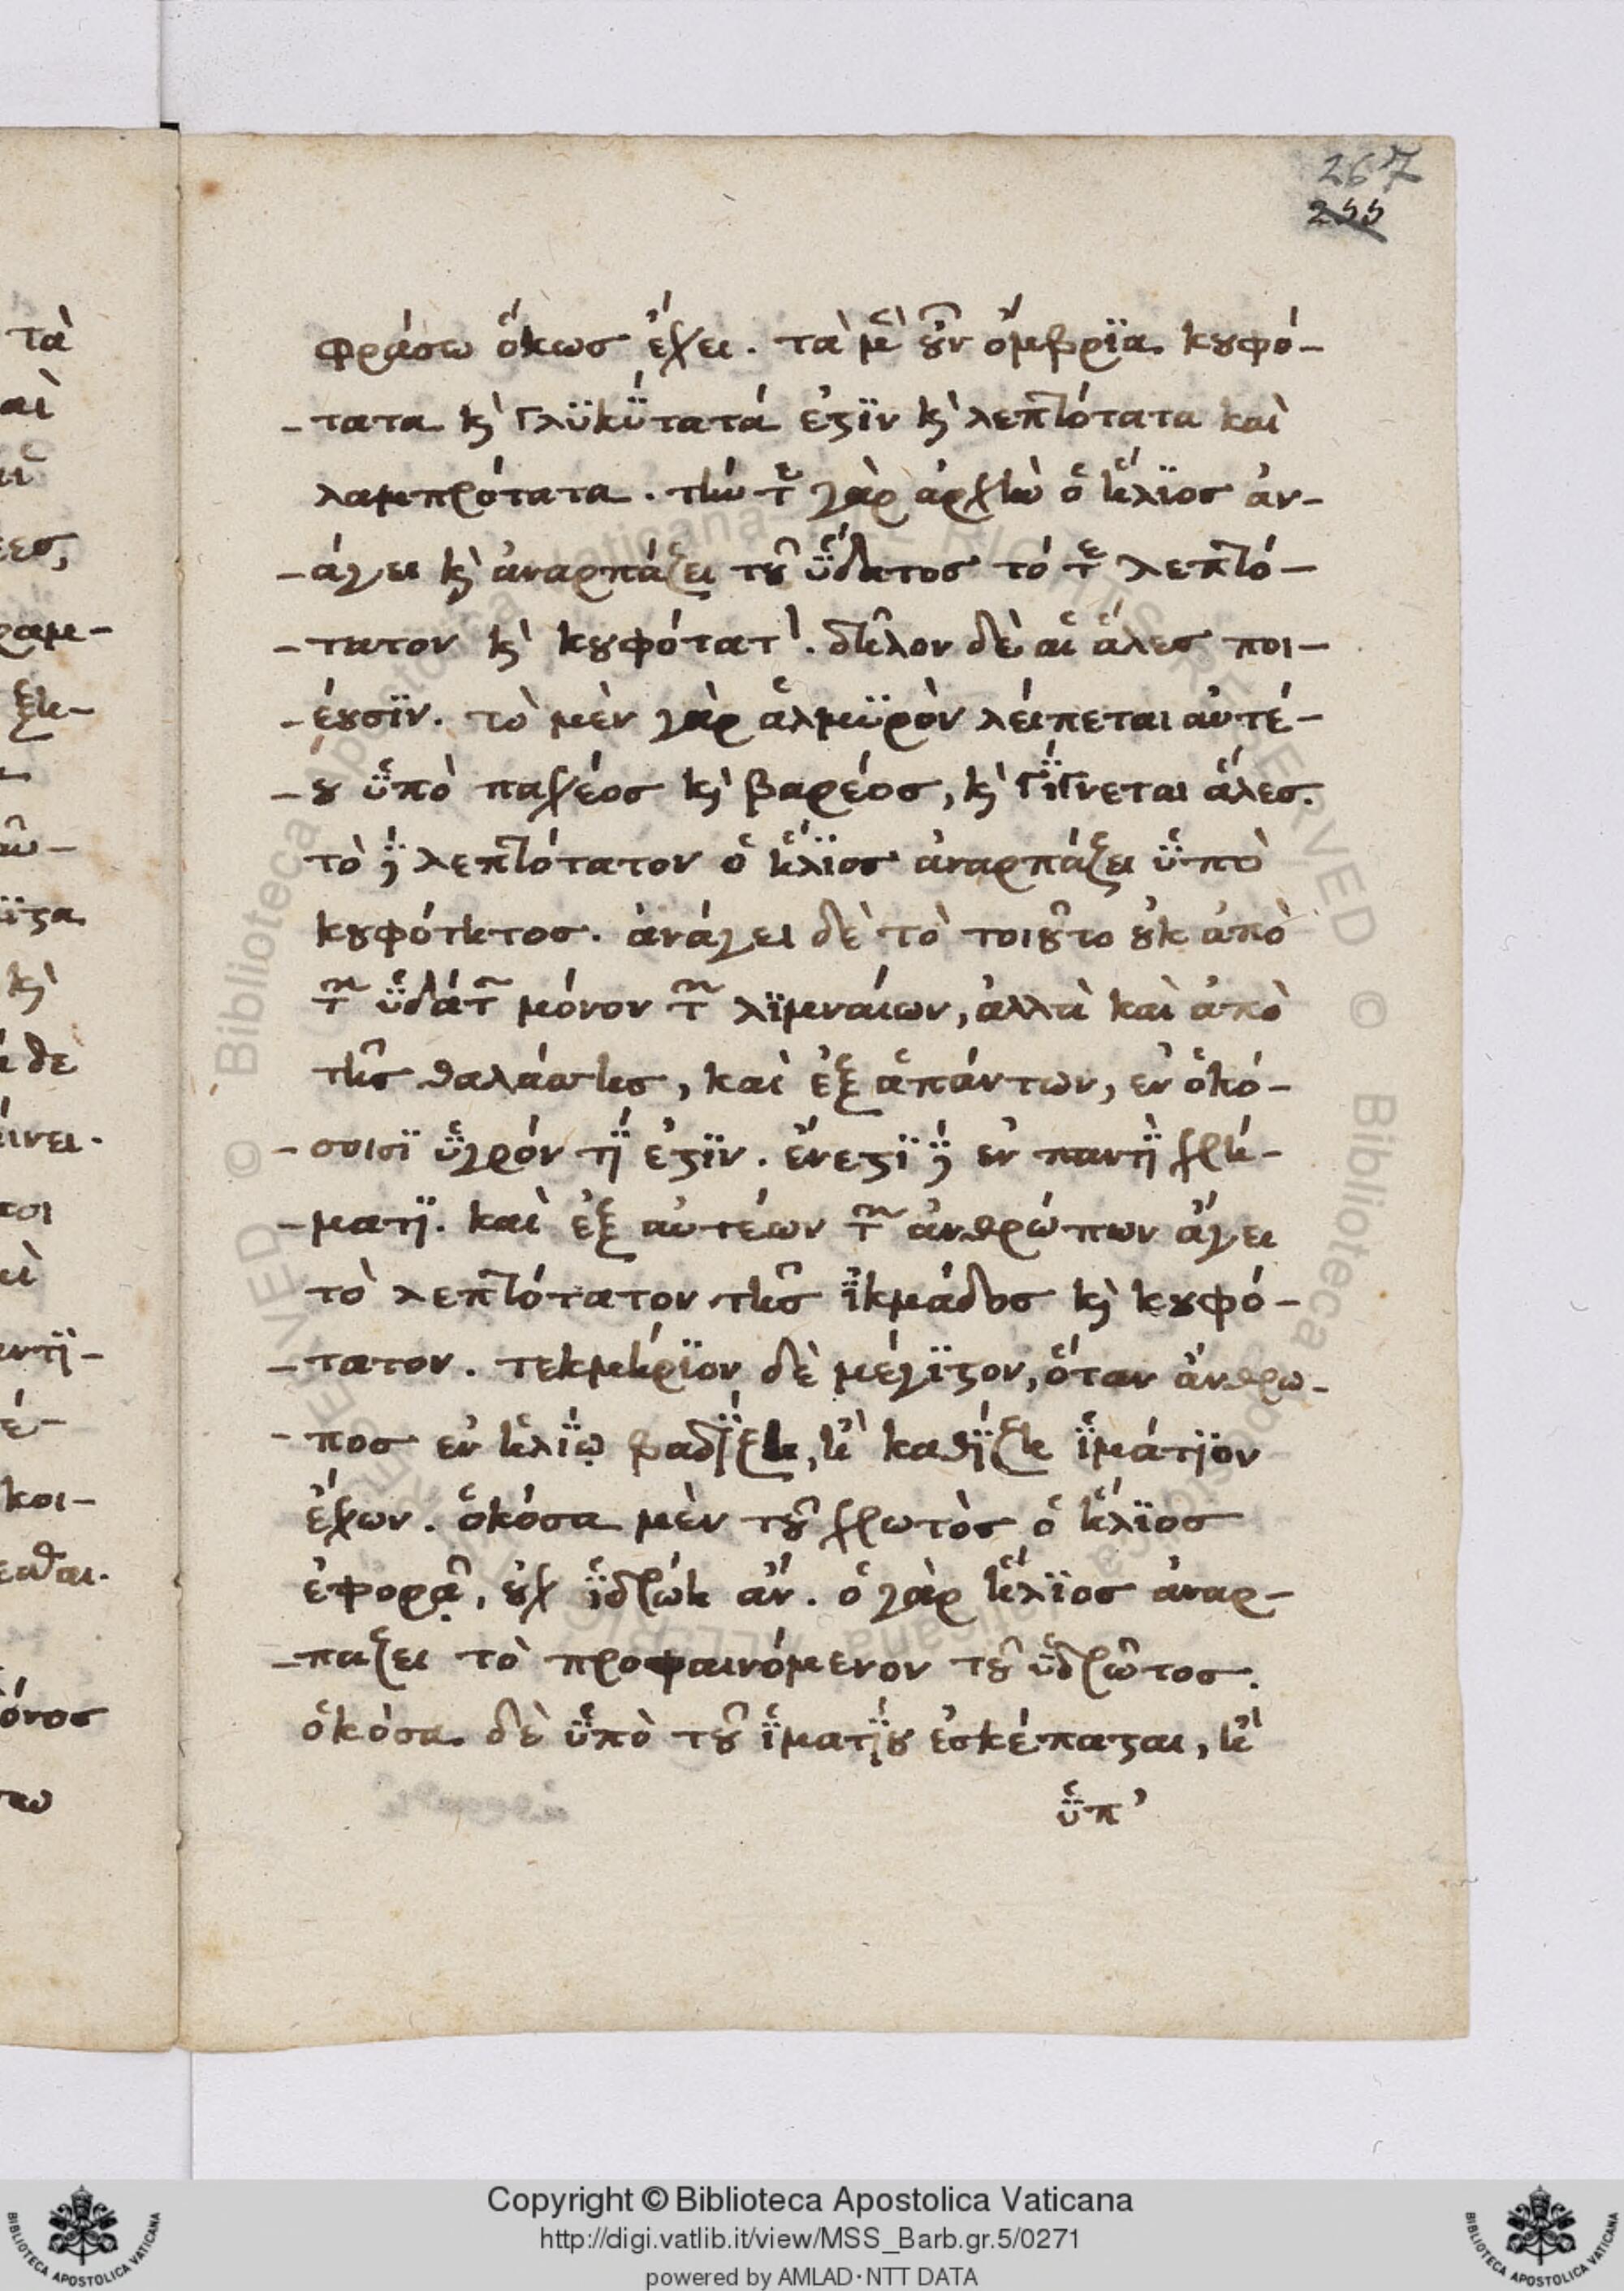 267
255
φράσω ὅκως ἔχει. τὰ μὲν ȣ̓͂ν ὄμβρϊα κȣφό-
-τατα κ̀ γλϋκΰτατά ἐϛϊν κ̀ λεπτότατα καὶ
λαμπρότατα. τήν τε γὰρ ἀρχὴν ὁ ἥλϊος ἀν-
-άγει κ̀ ἀναρπάζει τȣ͂ ὕδατος τό τε λεπτό-
-τατον κ̀ κȣφότατον. δῆλον δὲ αἱ ἅλες ποι-
-έȣσϊν. τὸ μὲν γὰρ ἁλμϋρὸν λείπεται αὐτέ-
-ȣ ὑπὸ παχέος κ̀ βαρέος, κ̀ γίγνεται ἅλες.
τὸ δὲ λεπτότατον ὁ ἥλϊος ἀναρπάζει ὑπὸ
κȣφότητος. ἀνάγει δὲ τὸ τοιȣ͂το ȣ̓κ ἀπὸ
τῶν ὑδάτων μόνον τῶν λϊμναίων, ἀλλὰ καὶ ἀπὸ
τῆς θαλάσσης, καὶ ἐξ ἁπάντων, ἐν ὁκό-
-σοισϊ ὑγρόν τϊ ἐϛϊν. ἔνεϛϊ δὲ ἐν παντῒ χρή-
-ματϊ. καὶ ἐξ αὐτέων τῶν ἀνθρώπων ἄγει
τὸ λεπτότατον τῆς ἰκμάδος κ̀ κȣφό-
-τατον. τεκμήρϊον δὲ μέγϊϛον, ὅταν ἄνθρω-
-πος ἐν ἡλίῳ βαδίζη, ἢ καθίζη ἱμάτϊον
ἔχων. ὁκόσα μὲν τȣ͂ χρωτὸς ὁ ἥλϊος
ἐφορᾷ, ȣ̓χ ἱδρώη ἄν. ὁ γὰρ ἥλϊος ἀναρ-
-παζει τὸ προφαινόμενον τȣ͂ ὑδρῶτος.
ὁκόσα δὲ ὑπὸ τȣ͂ ἱματίȣ ἐσκέπαϛαι, ἢ
ὑπ’
τὰ
αὶ
ραμ-
ξη-
ῶ-
ϊϛα
κ̀
θε
ίνει.
τοι
αὶ
αντϊ-
έ-
κοι-
εσθαι.
όνος
Copyright © Biblioteca Apostolica Vaticana
http://digi.vatlib.it/view/MSS_Barb.gr.5/0271
powered by AMLAD·NTT DATA
BIBLIOTECA APOSTOLICA VATICANA
BIBLIOTECA APOSTOLICA VATICANA